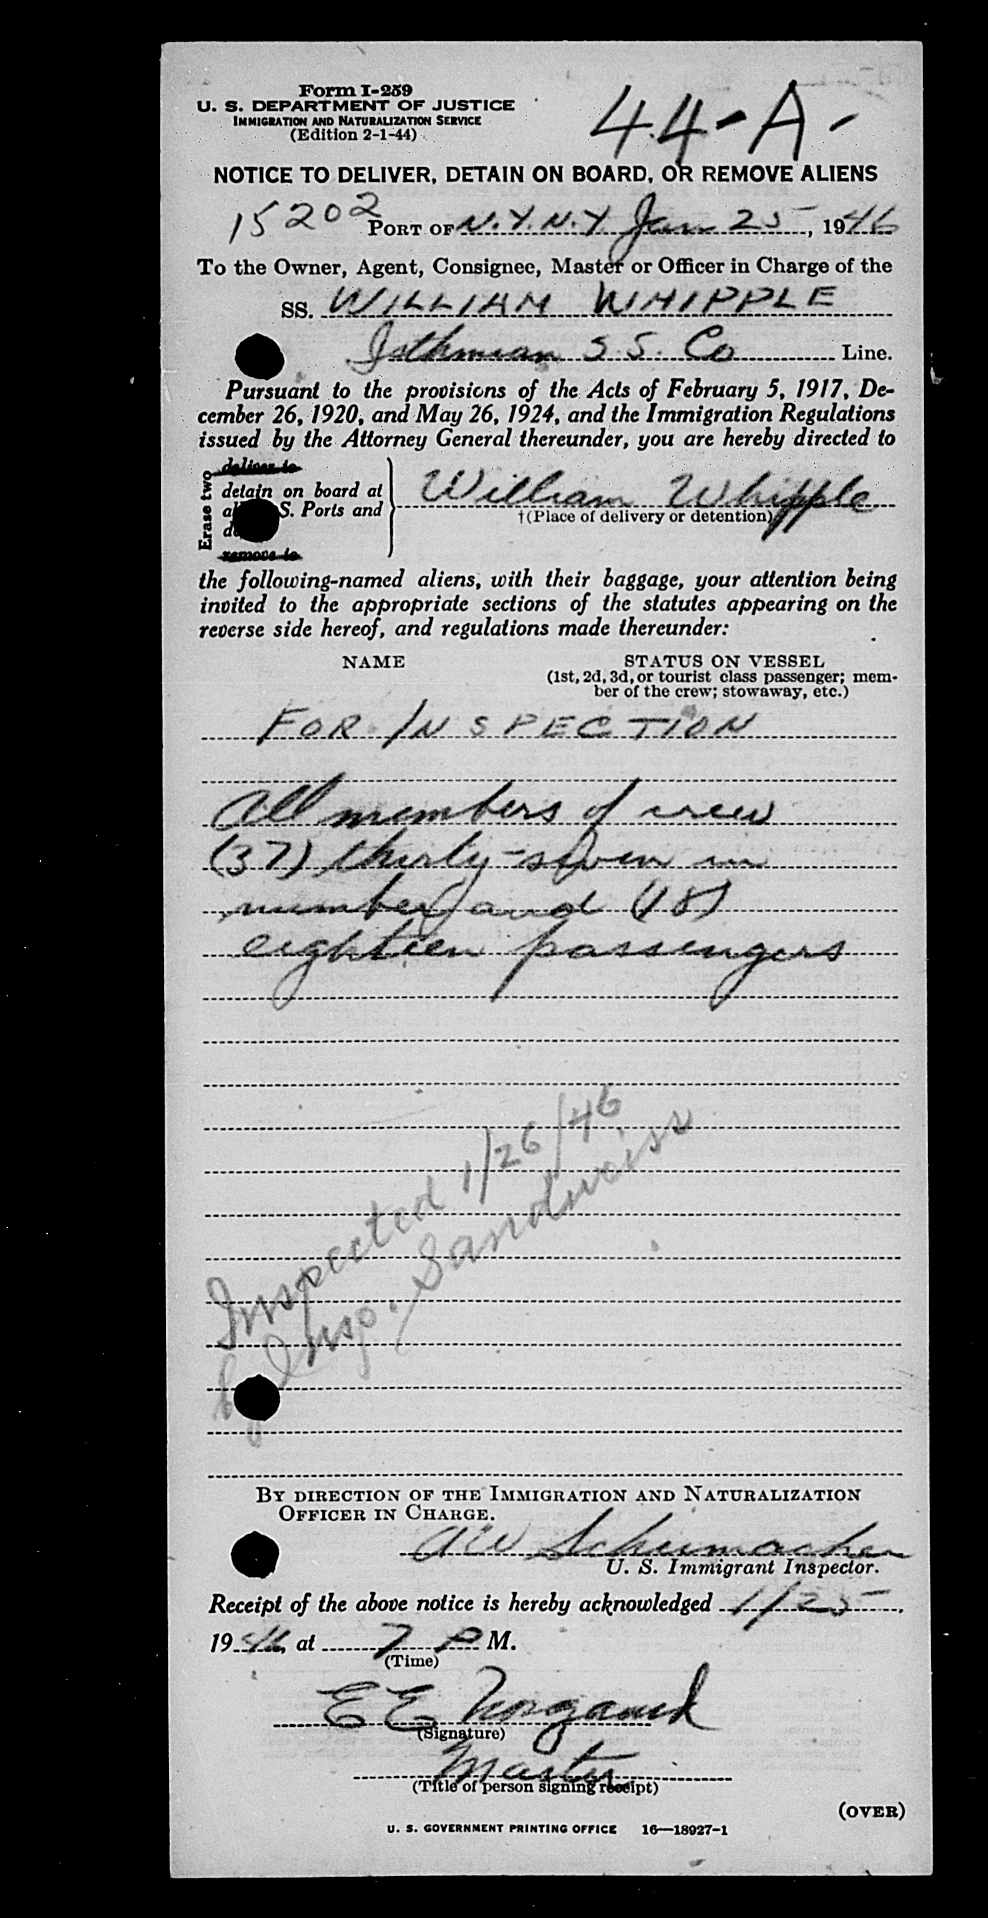 Form I-259
U. S. DEPARTMENT OF JUSTICE
IMMIGRATION AND NATURALIZATION SERVICE
(Edition 2-1-44)
44-A-
NOTICE TO DELIVER, DETAIN ON BOARD, OR REMOVE ALIENS
15202
PORT OF N.Y.N.Y. Jan 25, 1946
To the Owner, Agent, Consignee, Master or Officer in Charge of the
SS. WILLIAM WHIPPLE
Isthmian S.S. Co Line.
Pursuant to the provisions of the Acts of February 5, 1917, De-
cember 26, 1920, and May 26, 1924, and the Immigration Regulations
issued by the Attorney General thereunder, you are hereby directed to
Erase two
deliver to
detain on board at
S. Ports and
remove to
William Whipple
†(Place of delivery or detention)
the following-named aliens, with their baggage, your attention being
invited to the appropriate sections of the statutes appearing on the
reverse side hereof, and regulations made thereunder:
NAME STATUS ON VESSEL
(1st, 2d, 3d, or tourist class passenger; mem-
ber of the crew; stowaway, etc.)
FOR INSPECTION
All members of crew
(37) thirty-seven in
number and (18)
eighteen passengers
Inspected 1/26/46
by Insp. Sandweiss
BY DIRECTION OF THE IMMIGRATION AND NATURALIZATION
OFFICER IN CHARGE.
AW Schumacher
U. S. Immigrant Inspector.
Receipt of the above notice is hereby acknowledged 1/25,
1946, at 7 P M.
(Time)
E E
(Signature)
Master
(Title of person signing receipt)
(OVER)
U. S. GOVERNMENT PRINTING OFFICE 16—18927-1